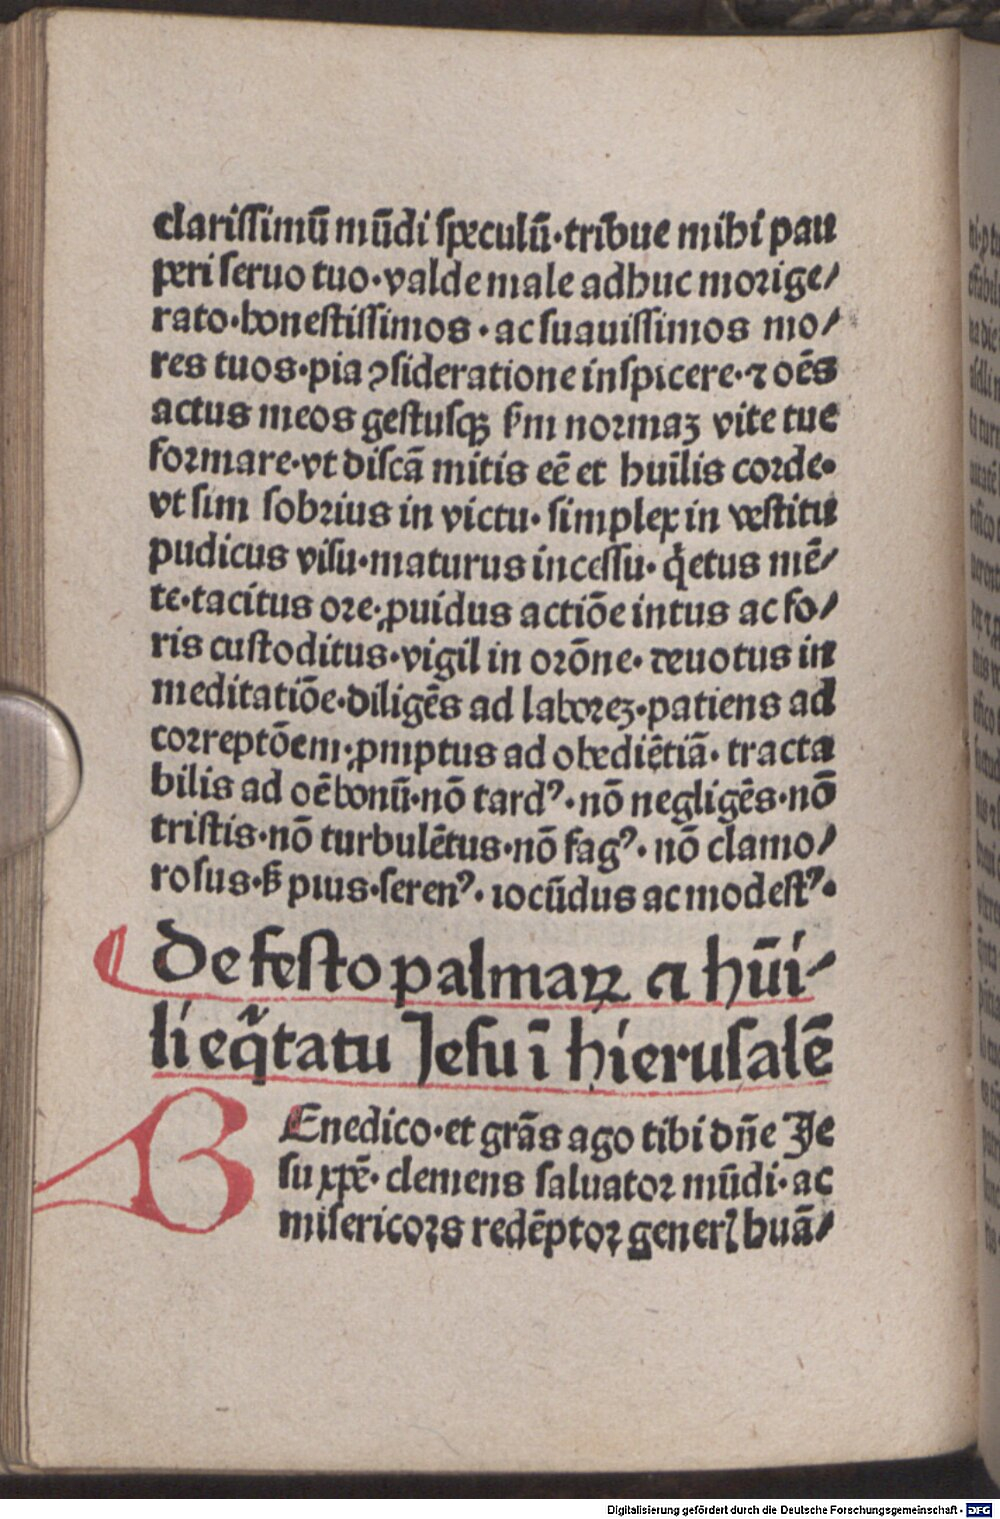 clarissimū mūdi speculū·tribue mihi pau
peri seruo tuo·valde male adhuc morige/
rato·honestissimos·ac suauissimos mo/
res tuos·pia ꝯsideratione inspicere·⁊ oēs
actus meos gestusqꝫ ẜm normaꝫ vite tue
formare·vt discā mitis eē et huīlis corde·
vt sim sobrius in victu·simplex in vestitu
pudicus visu·maturus incessu·q̇etus mē/
te·tacitus ore·ꝓuidus actiōe intus ac fo/
ris custoditus·vigil in orōne·deuotus in
meditatiōe·diligēs ad laboreꝫ·patiens ad
correptōem·ꝓmptus ad obediētiā·tracta
bilis ad oē bonū·nō tardꝰ·nō negligēs·nō
tristis·nō turbulētus·nō fagꝰ·nō clamo/
rosus·ẜ pius·serenꝰ·iocūdus ac modestꝰ·
De festo palmaꝝ ⁊ hūi/
li eq̃tatu Jesu ī hierusalē
BEnedico·et grās ago tibi dn̄e Je
su xp̄ē·clemens saluator mūdi·ac
misericors redēptor generꝭ huā/
ni·p
Digitalisierung gefördert durch die Deutsche Forschungsgemeinschaft - DFG